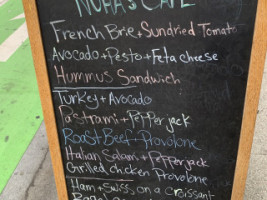 NORA'S CAFE
French Brie + Sundried Tomato
Avocado + Pesto + Feta cheese
Hummus Sandwich
Turkey + Avocado
Pastrami + Pepper jack
Roast Beef + Provolone
Italian Salami + Pepperjack
Grilled chicken Provolone
Ham + swiss on a croissant
Bagel